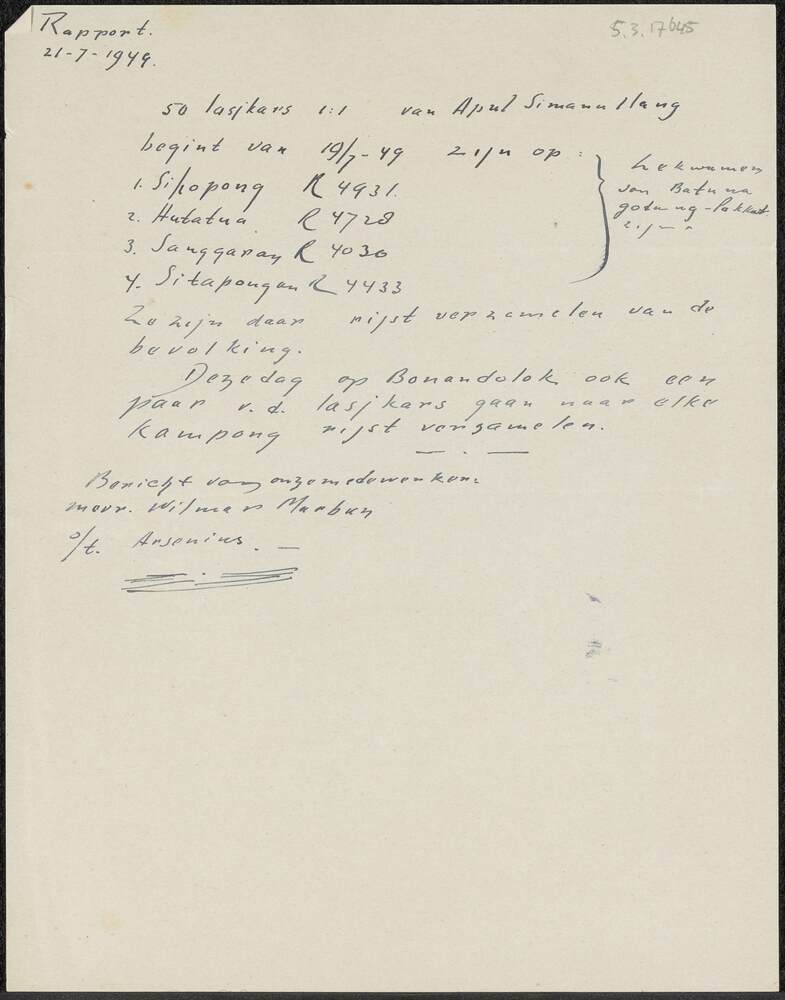 Rapport.
5.3.17645
21-7-1949.
50 lasjkars 1:1 van Apul Simanullang
begint van 19/7-49 zijn op:
1. Sihopong R 4931.
2. Hutatua R 4728
3. Sanggaran R 4030
4. Sitapongan R 4433
ze kwamen
van Batu na
godung-Pakkat.
Ze zijn daar rijst verzamelen van de
bevolking.
Dezedag op Bonandolok ook een
paar v.d. lasjkars gaan naar elke
Kampong rijst verzamelen.
Bericht van onze medewerker:
Wilmar Marbun
o/t. Arsenius.